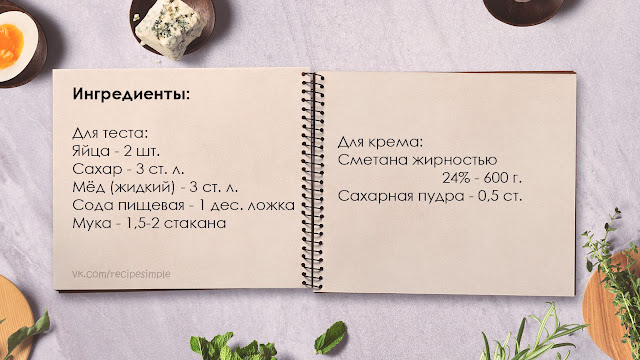 Ингредиенты:
Для теста:
Яйца - 2 шт.
Сахар - 3 ст. л.
Мёд (жидкий) - 3 ст. л.
Сода пищевая - 1 дес. ложка
Мука - 1,5-2 стакана
vk.com/recipesimple
Для крема:
Сметана жирностью
24% - 600 г.
Сахарная пудра - 0,5 ст.